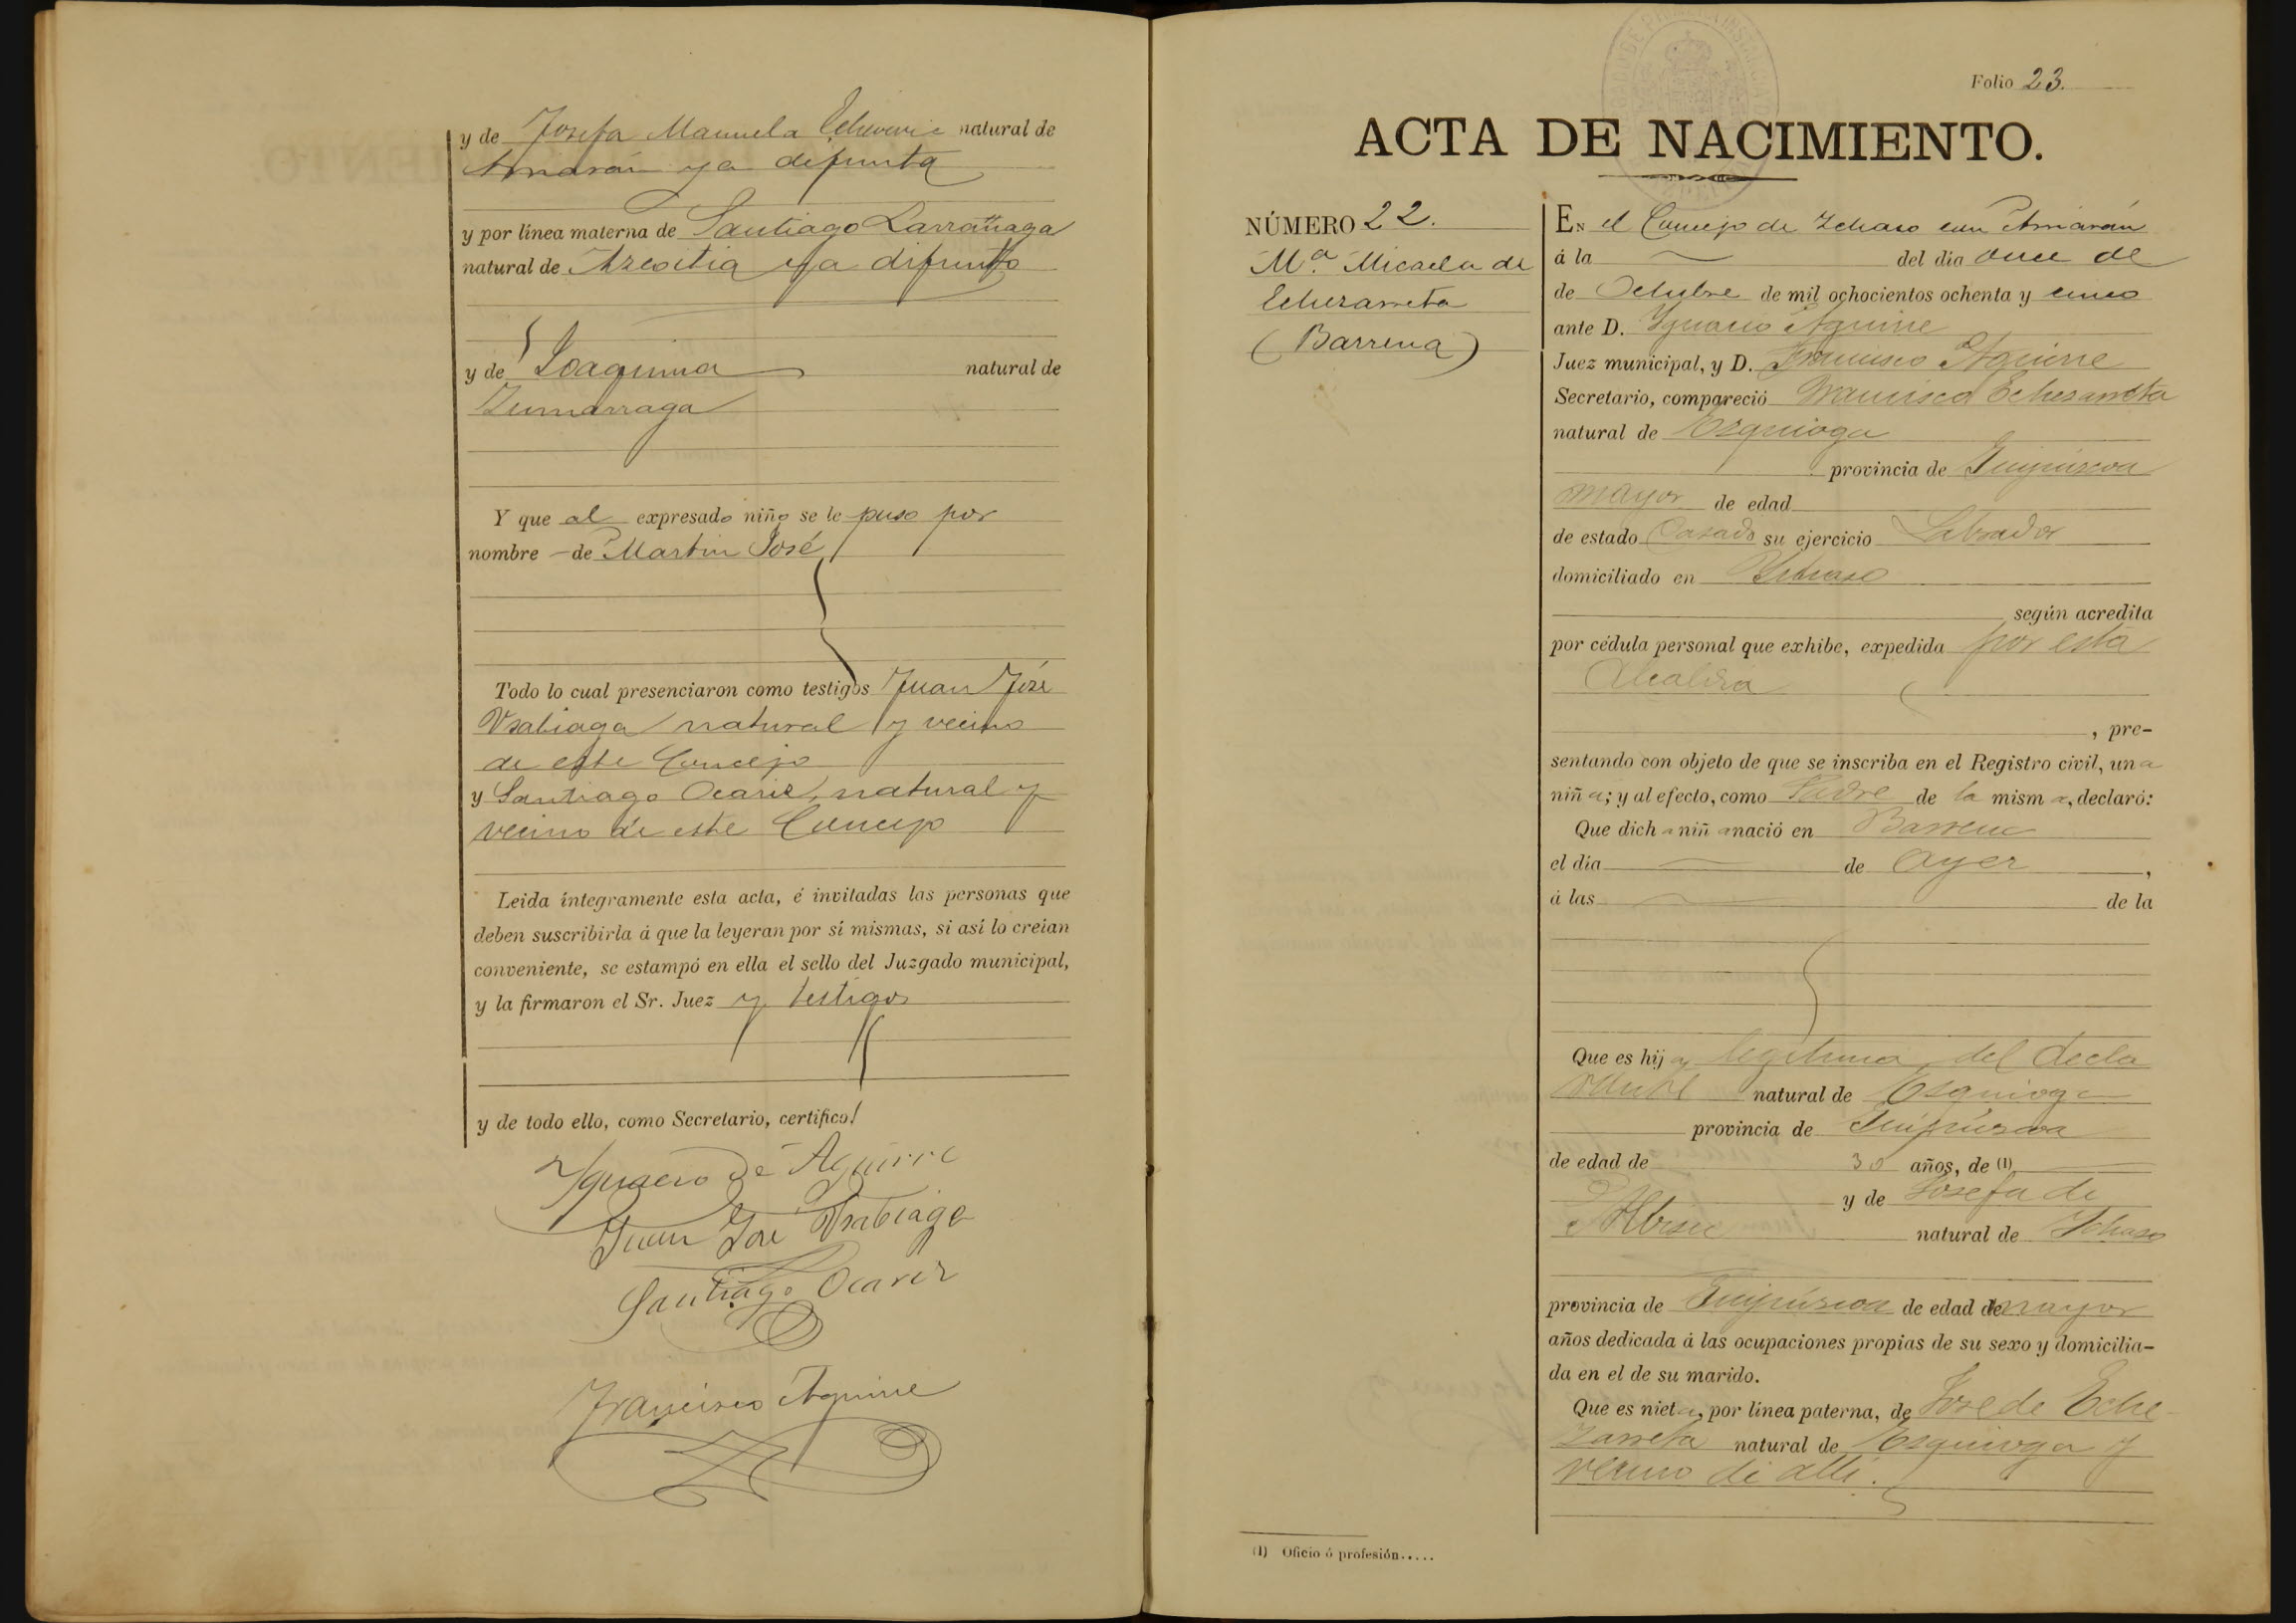 y de Josefa Manuela Echeverria natural de
Arriarán ya difunta
y por línea materna de Santiago Larrañaga
natural de Azcoitia ya difunto
y de Joaquina natural de
Zumarraga
Y que al expresado niño se le puso por
nombre de Martin José
Todo lo cual presenciaron como testigos Juan José
Usabiaga natural y vecino
de este Concejo
y Santiago Ocariz, natural y
vecino de este Concejo
Leida íntegramente esta acta, é invitadas las personas que
deben suscribirla á que la leyeran por sí mismas, si así lo creian
conveniente, se estampó en ella el sello del Juzgado municipal,
y la firmaron el Sr. Juez y testigos
y de todo ello, como Secretario, certifico!
Ygnacio de Aguirre
Juan José Usabiaga
Santiago Ocariz
Francisco Aguirre
Folio 23.
ACTA DE NACIMIENTO.
NÚMERO 22.
Mª Micaela de
Echezarreta
(Barrena)
EN el Concejo de Ichaso con Arriarán
á la del dia once de
de Octubre de mil ochocientos ochenta y cinco
ante D. Ygnacio Aguirre
Juez municipal, y D. Francisco Aguirre
Secretario, compareció Francisco Echezarreta
natural de Ezquioga
provincia de Guipúzcoa
mayor de edad
de estado Casado su ejercicio Labrador
domiciliado en Ychaso
según acredita
por cédula personal que exhibe, expedida por esta
Alcaldia
, pre-
sentando con objeto de que se inscriba en el Registro civil, una
niña; y al efecto, como Padre de la misma, declaró:
Que dicha niña nació en Barrena
el dia de Ayer,
á las de la
Que es hija legitima del decla
rante natural de Ezquioga
provincia de Guipúzcoa
de edad de 30 años, de (1)
y de Josefa de
natural de Ichaso
provincia de Guipúzcoa de edad de mayor
años dedicada á las ocupaciones propias de su sexo y domicilia-
da en el de su marido.
Que es nieta, por línea paterna, de Jose de Eche
zarreta natural de Ezquioga y
vecino de alli.
(1) Oficio ó profesión.....